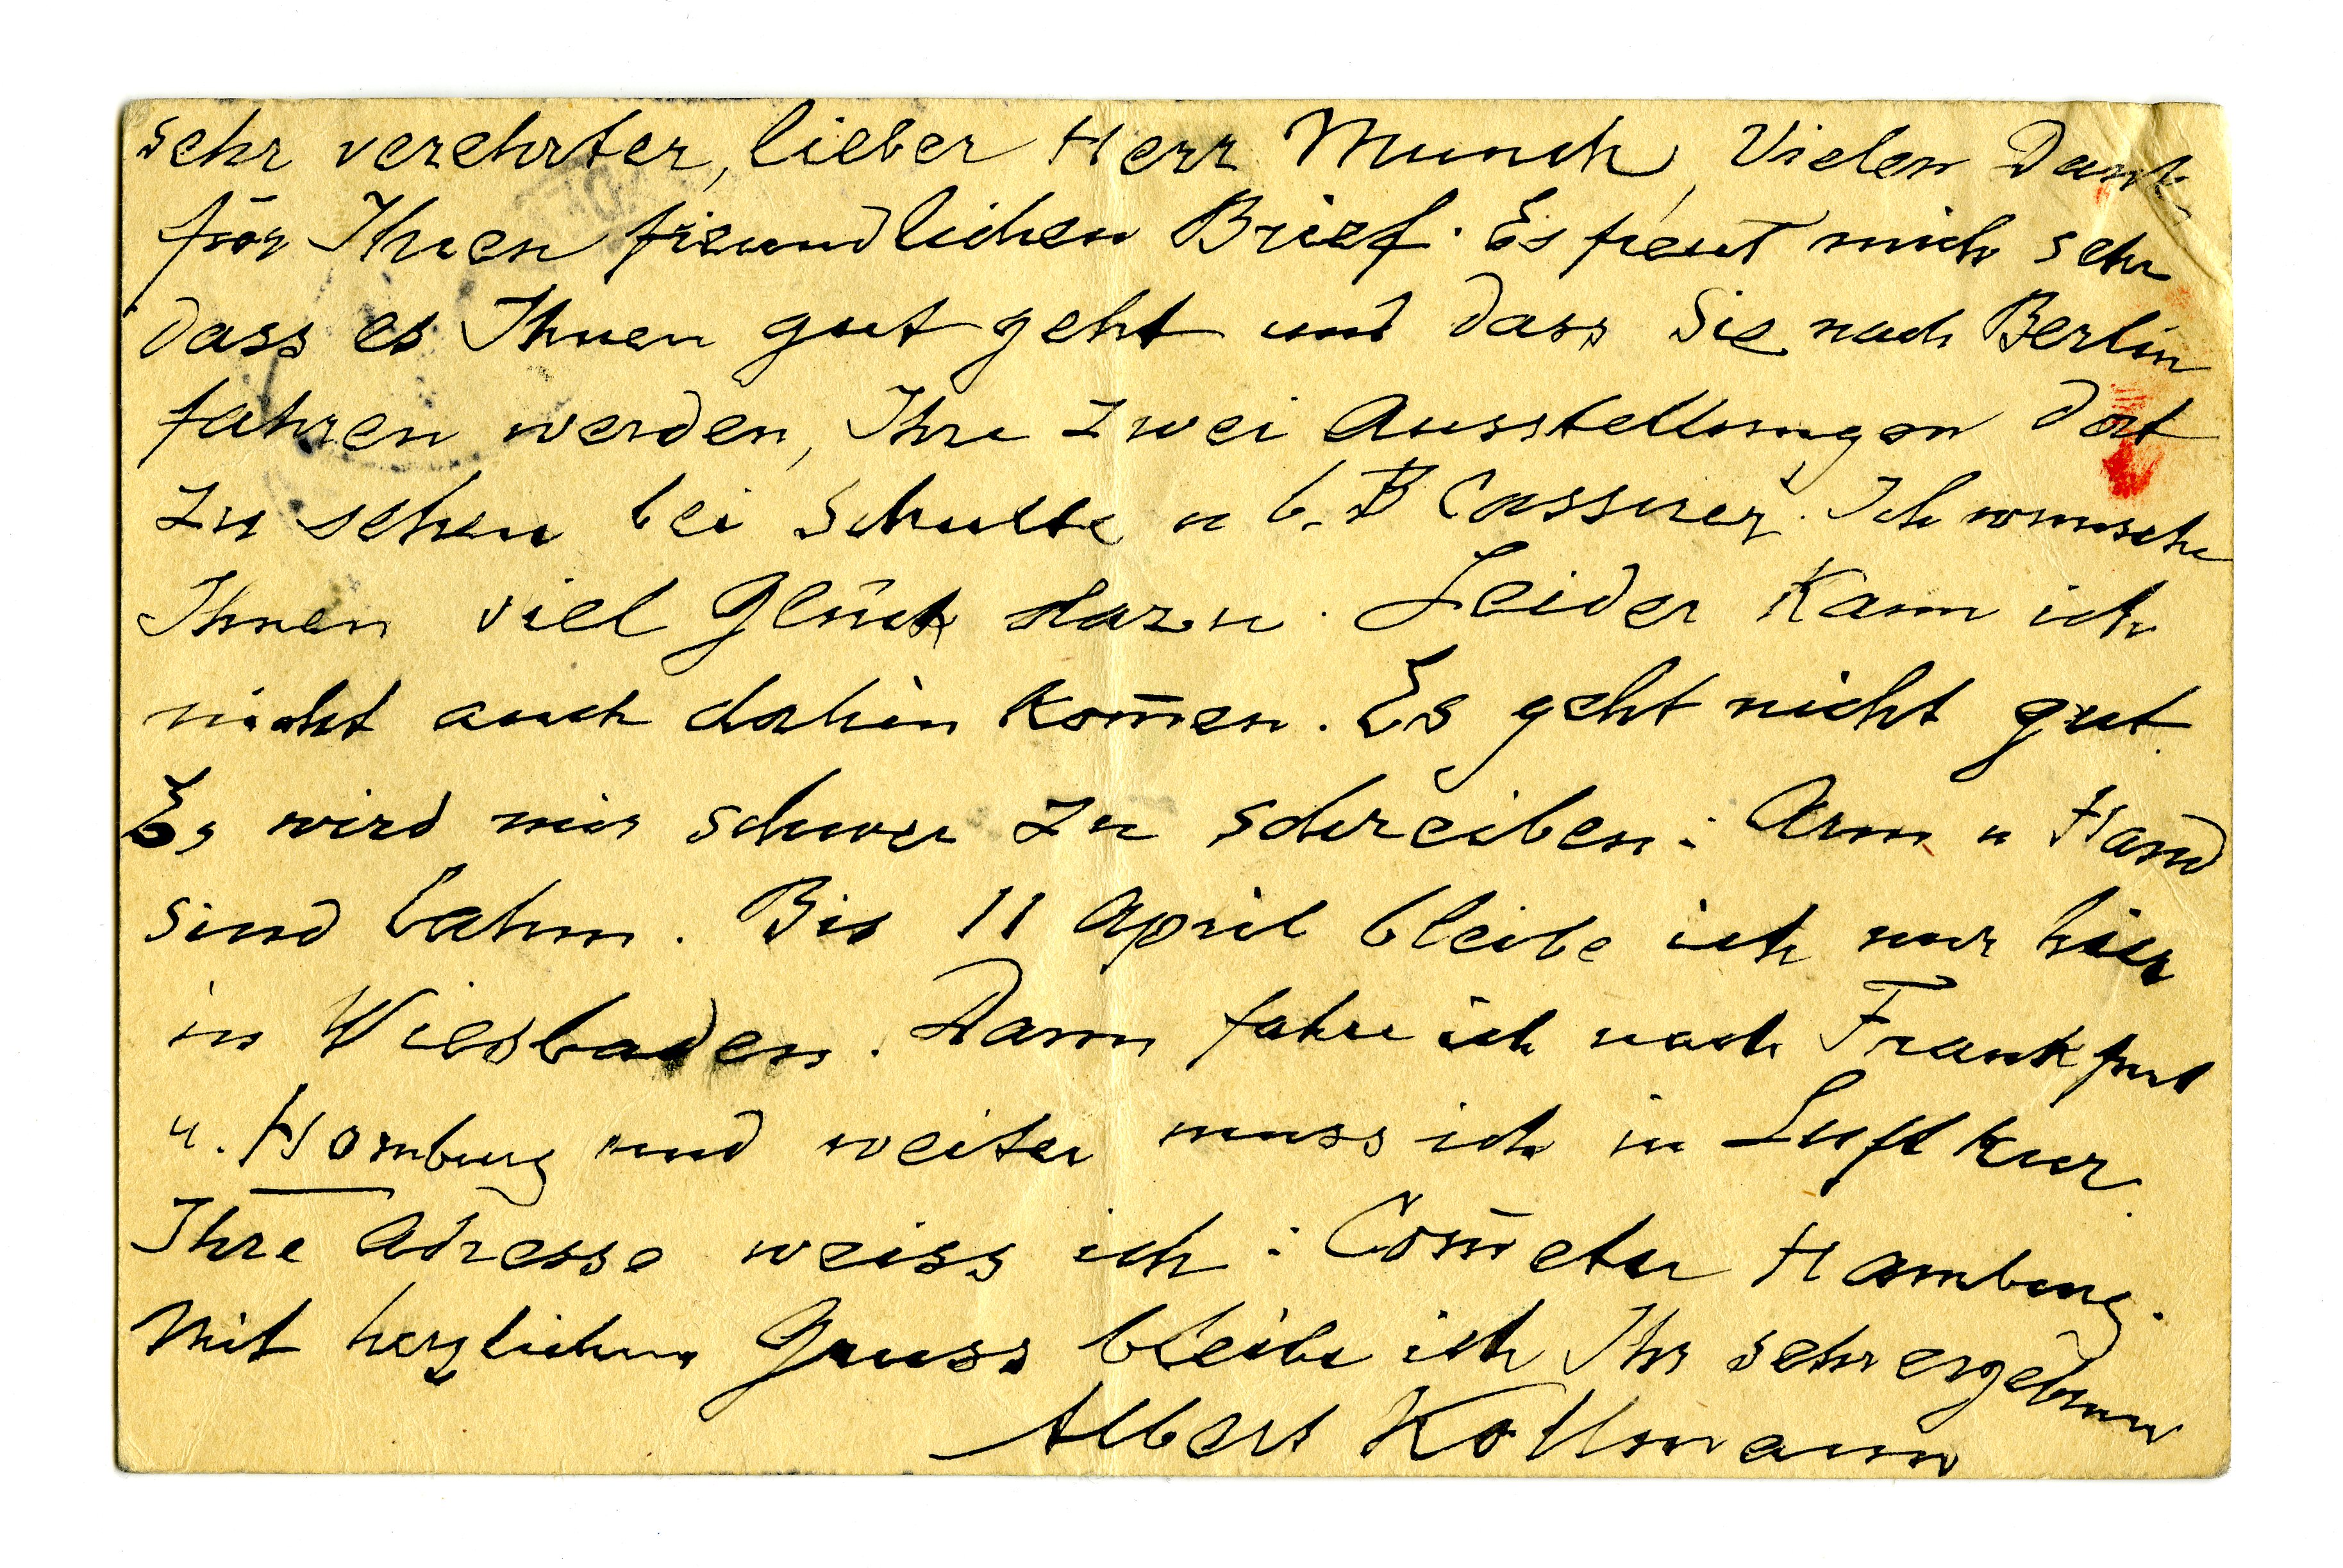 sehr verehrter, lieber Herr Munch, Vielen Dank
für Ihren freundlichen Brief. Es freut mich sehr
dass es Ihnen gut geht und dass Sie nach Berlin
fahren werden, Ihre zwei Ausstellungen dort
zu sehen bei Schulte u b. B Cassirer. Ich wünsche
Ihnen viel Glück dazu. Leider kann ich
nicht auch dahin kom̄en. Es geht nicht gut.
Es wird mir schwer zu schreiben: Arm u Hand
sind lahm. Bis 11 April bleibe ich nur hier
in Wiesbaden. Dann fahre ich nach Frankfurt
u. Homburg und weiter muss ich in Luftkur.
Ihre Adresse weiss ich: Com̄eter Hamburg.
Mit herzlichem Gruss bleibe ich Ihr sehr ergebener
Albert Kollmann